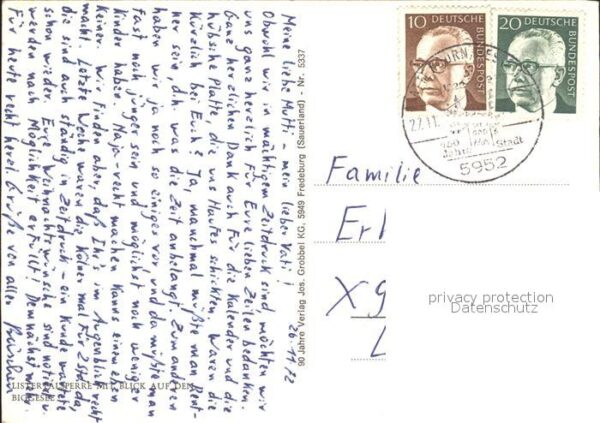 20.11.72
Meine liebe Mutti - mein lieber Vati!
Obwohl wir in mächtigem Zeitdruck sind, möchten wir
uns ganz herzlich für Eure lieben Zeilen bedanken.
Ganz herzlichen Dank auch für die Kalender und die
hübsche Platte, die uns Hautes schickten. Waren die
kürzlich bei Euch? Ja, manchmal müßte man Rent-
ner sein, d.h. was die Zeit anbelangt. Zum anderen
haben wir ja noch so einiges vor und da müßte man
fast noch jünger sein und möglichst noch weniger
Kinder haben. Naja - recht machen kanns einem eben
keiner. Wir finden aber, daß Ihr's im Augenblick recht
macht. Letzte Woche waren die Kölner mal für 2 Std. da,
die sind auch ständig in Zeitdruck - ein Kunde wartete
schon wieder. Eure Weihnachtswünsche sind notiert u.
werden nach Möglichkeit erfüllt! Demnächst mehr.
Für heute recht herzl. Grüße von allen
LISTERTALSPERRE MIT BLICK AUF DEN
BIGGESEE
90 Jahre Verlag Jos. Grobbel KG, 5949 Fredeburg (Sauerland) - Nr. 5337
10 DEUTSCHE BUNDESPOST
20 DEUTSCHE BUNDESPOST
Stadt
5952
Familie
privacy protection
Datenschutz